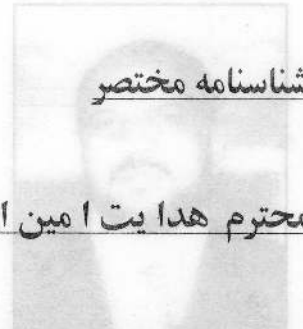 شناسنامه مختصر
محترم هدا يت ا مين ا